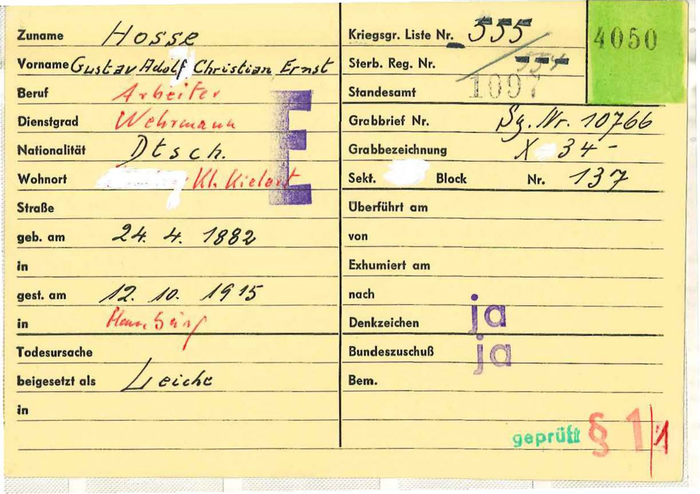 Zuname Hosse
Vorname Gustav Adolf Christian Ernst
Beruf Arbeiter
Dienstgrad Wehrmann
Nationalität Dtsch.
Wohnort Kl. Kielort
Straße
geb. am 24. 4. 1882
in
gest. am 12. 10. 1915
in Hamburg
Todesursache
beigesetzt als Leiche
in
E
Kriegsgr. Liste Nr. 555
Sterb. Reg. Nr.
Standesamt 1097
Grabbrief Nr. Sg. Nr. 10766
Grabbezeichnung X 34 -
Sekt. Block Nr. 137
Überführt am
von
Exhumiert am
nach
Denkzeichen ja
Bundeszuschuß ja
Bem.
geprüft § 1/1
4050